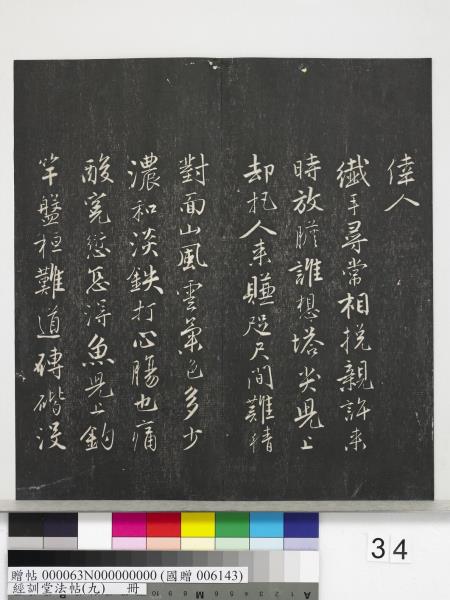 偉人
纖手尋常相挽親許來
時放膽誰想塔尖兒上
却把人來賺咫尺間難猜
對面山風雲氣色多少
濃和淡鉄打心腸也痛
酸寃愆怎得魚兒上釣
竿盤桓難道磚沒
34
贈帖 000063N000000000 (國贈 006143)
經訓堂法帖(九) 冊